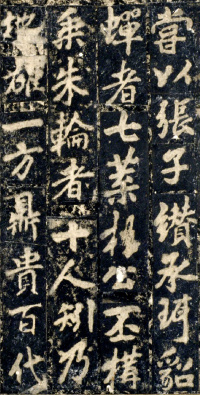 嘗以張子纘承珥貂
蟬者七葉楊公丕構
乗朱輪者十人矧乃
地郄一方鼎貴百代